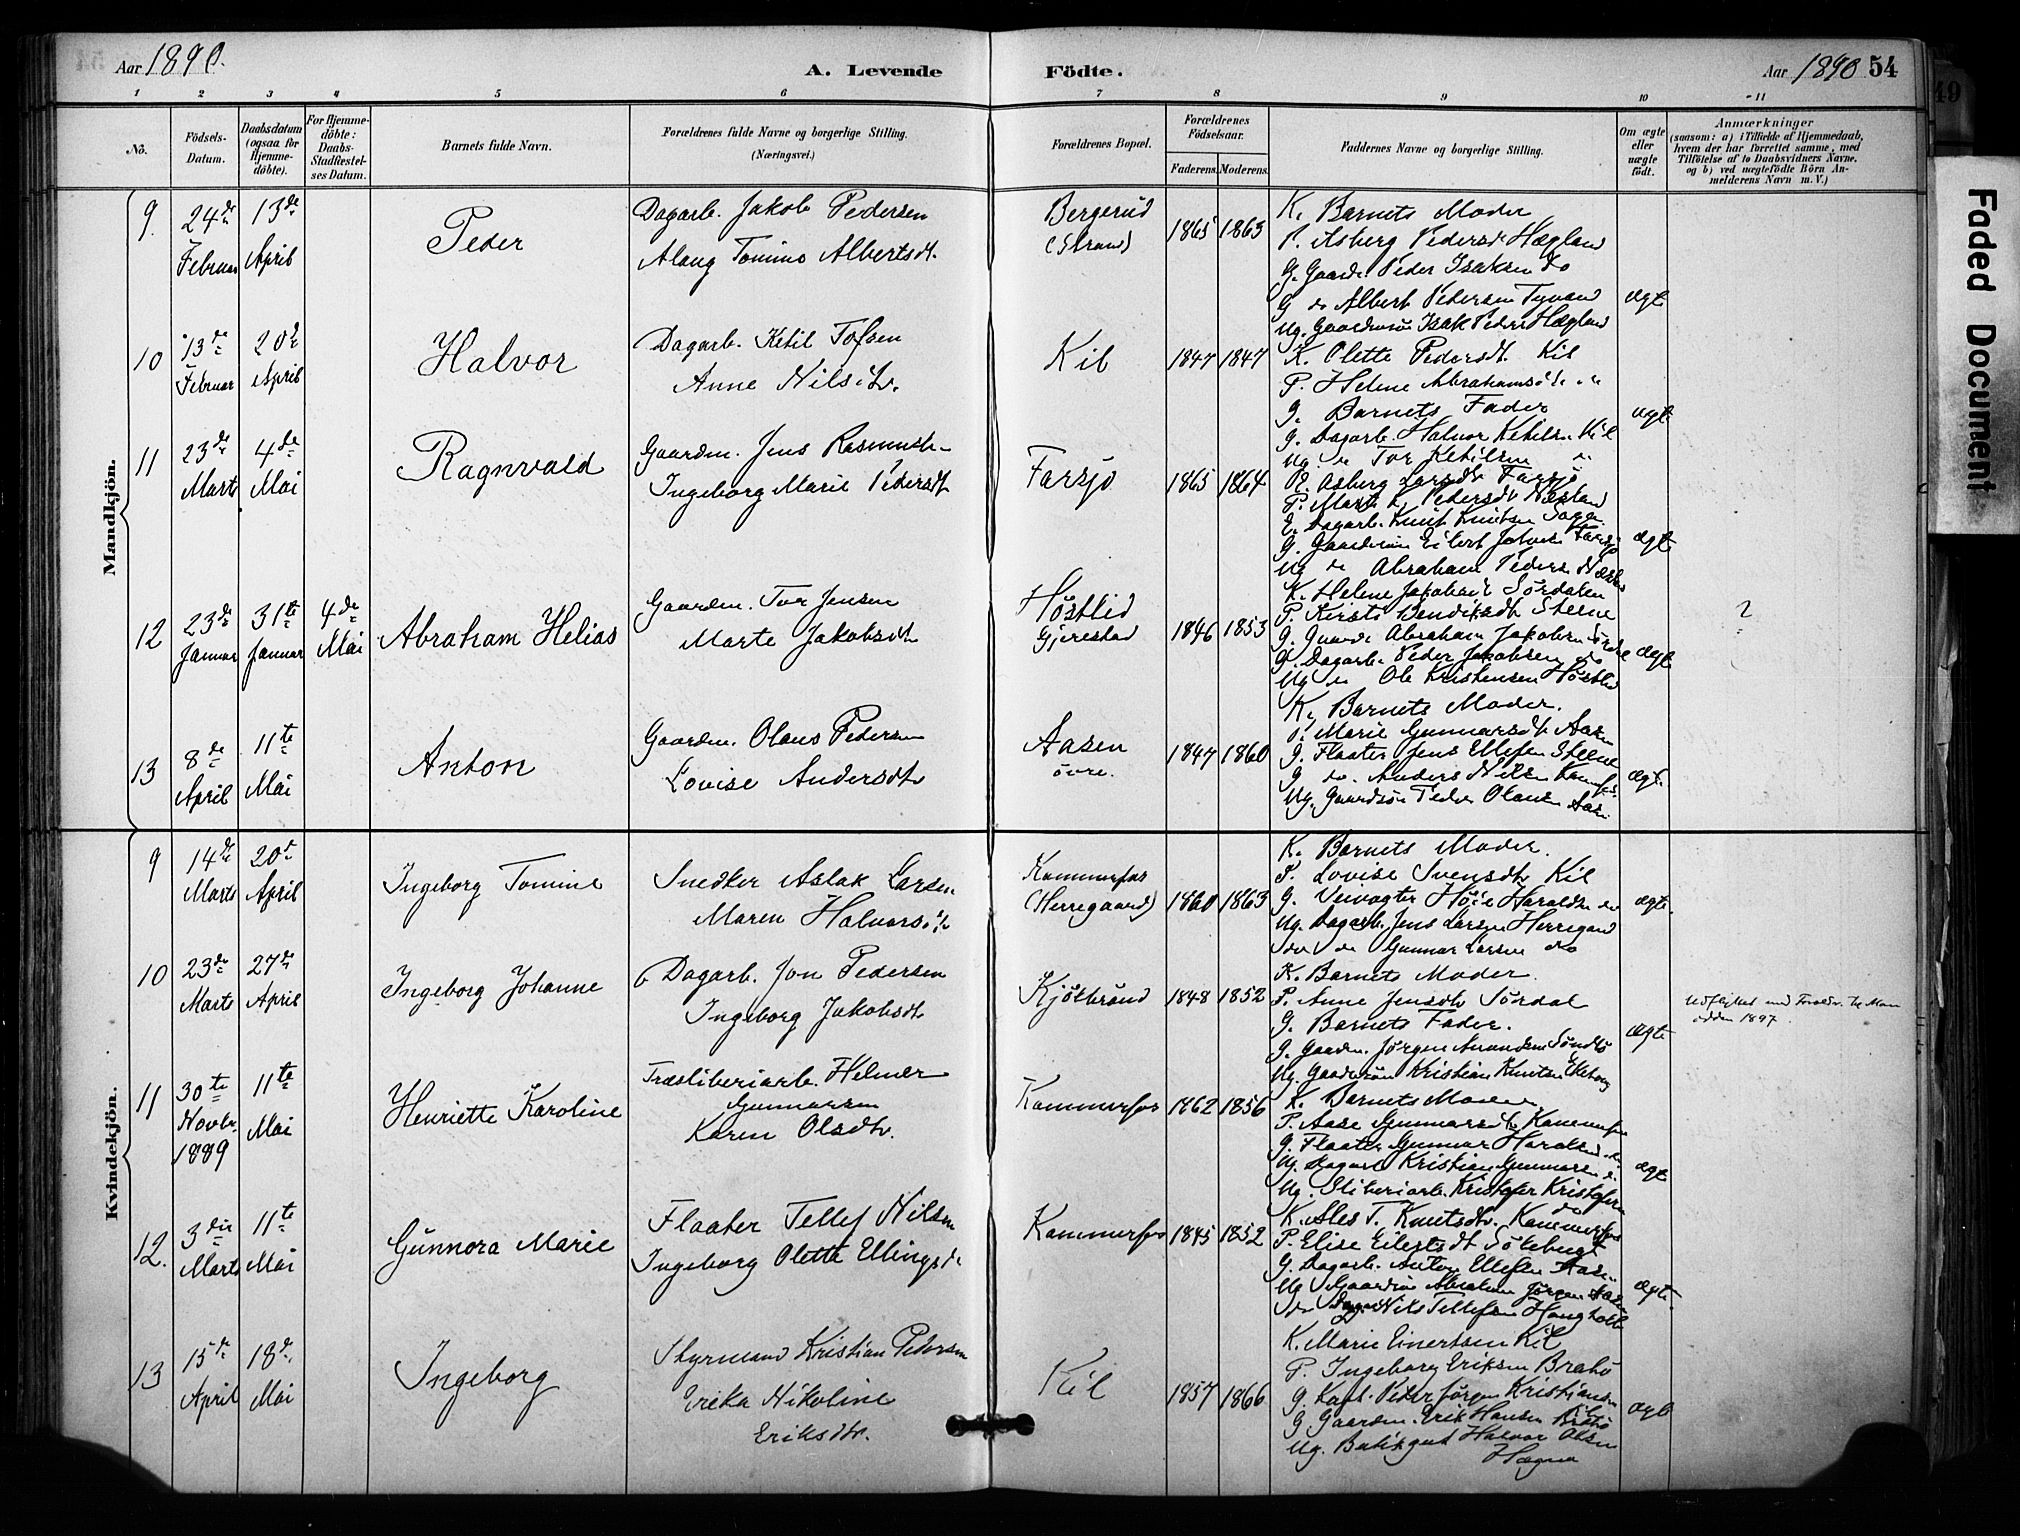 Aar 1890.
A. Levende Födte.
Aar 1890 54
1 2 3 4 5 6 7 8 9 10 11
No.
Födsels-Datum.
Daabsdatum (ogsaa for Hjemmedöbte).
For Hjemmedöbte: Daabs-Stadfæstelses Datum.
Barnets fulde Navn.
Forældrenes fulde Navne og borgerlige Stilling. (Næringsvei.)
Forældrenes Bopæl.
Forældrenes Födselsaar.
Faderens. Moderens.
Faddernes Navne og borgerlige Stilling.
Om ægte eller uægte födt.
Anmærkninger
(saasom: a) i Tilfælde af Hjemmedaab, hvem der har forrettet samme, med Tilföielse af to Daabsvidners Navne, og b) ved uægtefödte Börn Anmelderens Navn m. V.)
Mandkjön.
9. 24de Februar 13de April
Peder
Dagarb. Jakob Pedersen
Alaug Tomine Albertsdt.
Bergerud
(Strand)
1865 1863
K. Barnets Moder
P. Asberg Pedersd Hægland
G. Gaardm Peder Isaksen do
G do Albert Pedersen Tyvand
Ug. Gaardmsön Isak Peders Hægland
ægte
10 13de Februar 20de April
Halvor
Dagarb. Ketil Tofsen
Anne Nilsdtr.
Kil
1847 1847
K. Olette Pedersdt. Kil
P. Helene Abrahamsdt "
G. Barnets Fader
G. Dagarb. Halvor Ketilsen Kil
Ug. do Tor Ketilsen "
ægte
11 23de Marts 4de Mai
Ragnvald
Gaardm. Jens Rasmussen
Ingeborg Marie Pedersdt
Farsjö
1865 1864
K. Asberg Larsdtr Farsjö
P. Marte K. Pedersdt Næsland
G. Dagarb. Knut Knutsen
G. Gaardmsön Eilert Farsjö
Ug do Abraham Peders
ægte
12 23de Januar 31te Januar 4de Mai
Abraham Helias
Gaardm. Tor Jensen
Marte Jakobsdt
Höstlid
Gjerestad
1846 1853
K. Helene Jakobsdt Sördalen
P. Kirsti Bendiksdt Steene
G. Gaardm Abraham Jakobsen Sördal
G. Dagarb. Peder Jakobsen do
Ug do Ole Kristensen Höstlid
ægte
2
13 8de April 11te Mai
Anton
Gaardm. Olaus Pedersen
Lovise Andersdtr
Aasen
övre.
1847 1860
K. Barnets Moder.
P. Marie Gunnarsdt Aasen
G. Flaater Jens Ellefsen Steene
G do. Anders Nilsen
Ug. Gaardsön Peder Olausen Aasen
ægte.
Kvindekjön.
9 14de Marts 20de April
Ingeborg Tomine
Snedker Aslak Larsen
Maren Halvorsdtr
Kammerfos
(Herregaard)
1860 1863
K. Barnets Moder.
P. Lovise Svensdtr Kil
G. Veivogter Höie Haraldsen do
Ug. Dagarb. Jens Larsen Herregaard
do do Gunnar Larsen do
ægte.
10 23de Marts 27de April
Ingeborg Johanne
Dagarb. Jon Pedersen
Ingeborg Jakobsdtr
Kjölbrönd
1848 1852
K. Barnets Moder.
P. Anne Jensdtr Sördal
G. Barnets Fader.
G. Gaardm. Jörgen
Ug. Gaardmsön Kristian Knutsen
ægte
11 30te Novbr. 1889 11te Mai
Henriette Karoline
Træsliberiarb. Helmer
Gunnarsen
Karen Olsdtr.
Kammerfos
1862 1856
K. Barnets Moder
P. Aase Gunnarsdtr Kammerfos
G. Flaater Gunnar Haraldsen do
Ug. Dagarb Kristian Gunnarsen do
Ug. Sliberiarb. Kristofer Kristofersen
do
ægte
12. 3die Marts 11te Mai
Gunnora Marie
Flaater Tellef Nilsen
Ingeborg Olette Ellingsdt
Kammerfos
1845 1852
K. Ales T. Knutsdtr. Kammerfos
P. Elise Eilertsdt
G. Dagarb. Anton Ellefsen Aasen
Ug Gaardsön Abraham Jörgensen Aasen
do Nils Tellefsen
ægte.
13 15de April 18de Mai
Ingeborg
Styrmand Kristian Pedersen
Ereka Nikoline
Eriksdtr.
Kil
1857 1866
K. Marie Einertsen Kil
P. Ingeborg Eriksen
G. Kapt. Peder Jörgen Kristiansen
G Gaardm. Erik Hansen
Ug. Halvor Olsen
ægte
Udflyttet med Foreldr. til
odden 1897.
Faded Document